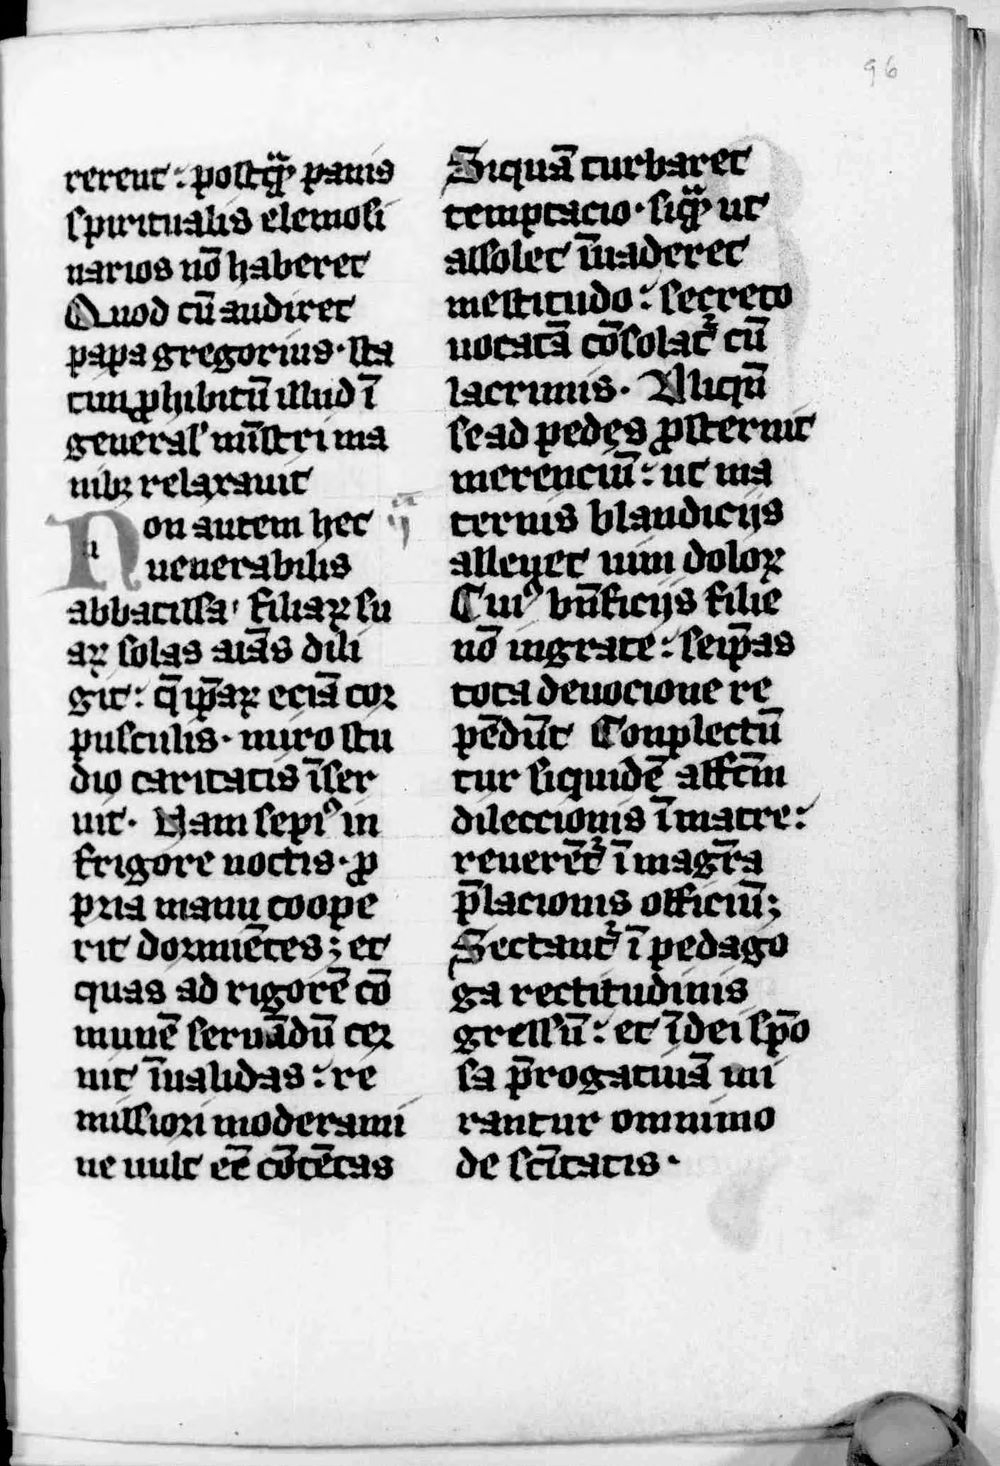 96
rerent : postqᷓ panis
spiritualis elemosi
narios nō haberet
Quod cū audiret
papa gregorius · sta
tim ꝓhibitū illud ī
general' mīstri ma
nibꝫ relaxauit
Non autem hec
uenerabilis
abbatissa filiaꝝ su
aꝝ solas aīas dili
git : q̄ ip̄aꝝ eciā coꝛ
pusculis · miro stu
dio caritatis īser
uit · Nam sepiꝰ in
frigore noctis · ꝓ
pria manu coope
rit doꝛmiētes ; et
quas ad rigorē cō
munē seruādū ceꝛ
nit īualidas : re
missioꝛi moderami
ne uult eē cōtētas
Siquā turbaret
temptacio · siqᷓ ut
assolet īuaderet
mestitudo : secreto
uocatā cōsolat᷑ cū
lacrimis · Aliqn̄
se ad pedes ꝓsternit
merenciū : ut ma
ternis blandicijs
alleuet uim doloꝝ
Cuiꝰ bn̄ficijs filie
nō ingrate : seip̄as
tota deuocione re
pēdūt Conplectū
tur siquidē affcm̄
dileccionis ī matre :
reuerēt᷑ ī magr̄a
p̄lacionis officiū ;
Sectant᷑ ī pedago
ga rectitudinis
gressū : et ī dei spō
sa p̄rogatiuā mi
rantur omnimo
de sc̄itatis ·